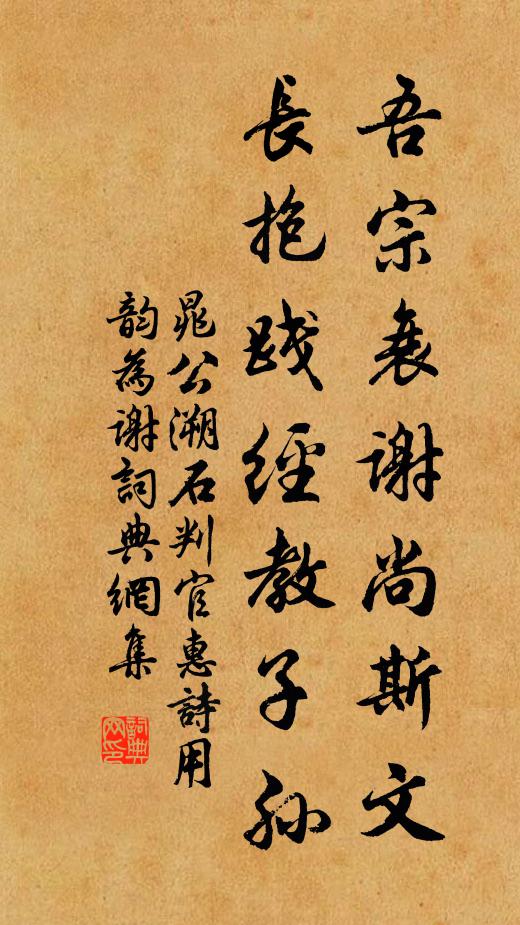 吾宗衰谢尚斯文
長抱残經教子孫
晁公溯石判官惠詩用
韵為谢詞典網集
詞典
网印